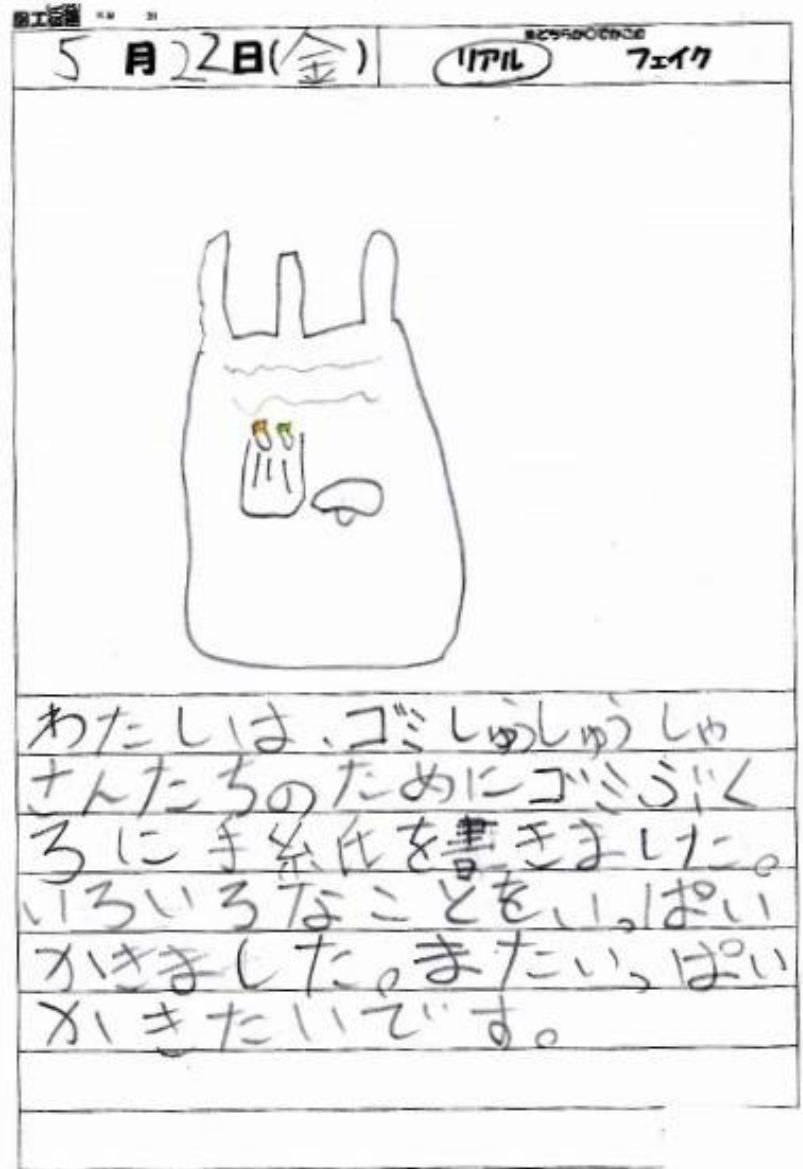 5月22日(金) リアル フェイク
わたしは、ゴミしゅうしゅうしゃ
さんたちのためにゴミぶく
ろに手紙を書きました。
いろいろなことを、いっぱい
かきました。またいっぱい
かきたいです。